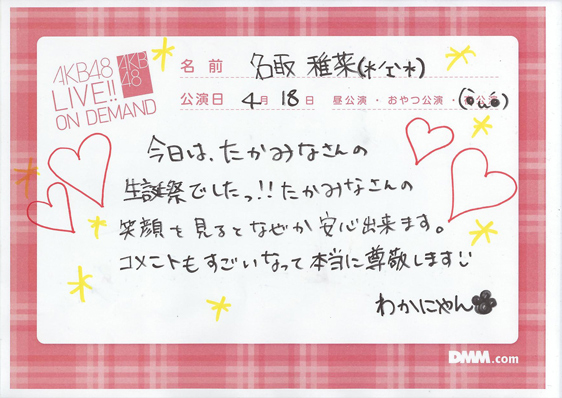 AKB48
LIVE!!
ON DEMAND
AKB
48
名前 名取 稚菜(*/ェ\*)
公演日 4月 18日 昼公演・おやつ公演・
今日は、たかみなさんの
生誕祭でしたっ!!たかみなさんの
笑顔を見るとなぜか安心出来ます。
コメントもすごいなって本当に尊敬します
わかにゃん
DMM.com